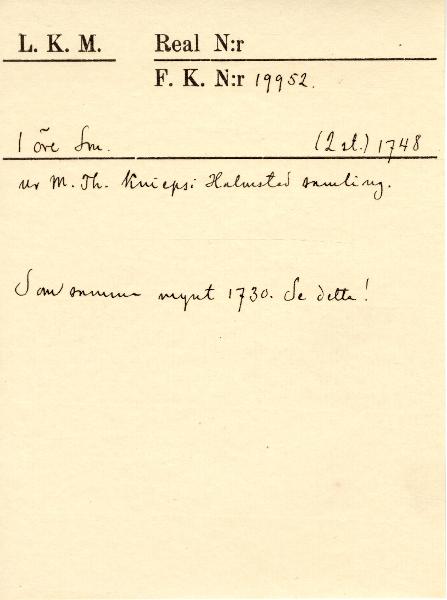 L. K. M. Real N:r
F. K. N:r 19952.
1 öre Sm. (2 st.) 1748
ur M. Th. Kniepsi Halmstad samling.
Som samma mynt 1730. Se detta!